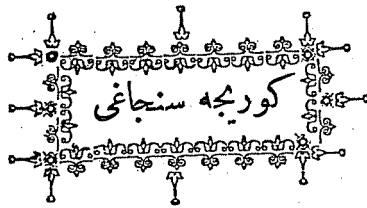 كوریجه سنجاغی